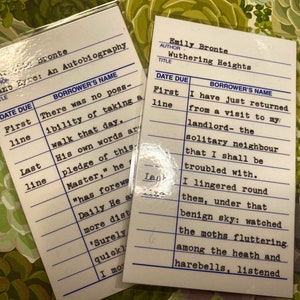 Bronte
AUTHOR
Eyre: An Autobiography
TITLE
DATE DUE BORROWER'S NAME
First There was no poss-
line ibility of taking a
walk that day.
Last His own words are
line pledge of this:
Master," he
"has forew
Daily He
more dist
'Surely
quickl
I mo
Emily Bronte
AUTHOR
Wuthering Heights
TITLE
DATE DUE BORROWER'S NAME
First I have just returned
line from a visit to my
landlord- the
solitary neighbour
that I shall be
troubled with.
Last I lingered round
line them, under that
benign sky: watched
the moths fluttering
among the heath and
harebells, listened